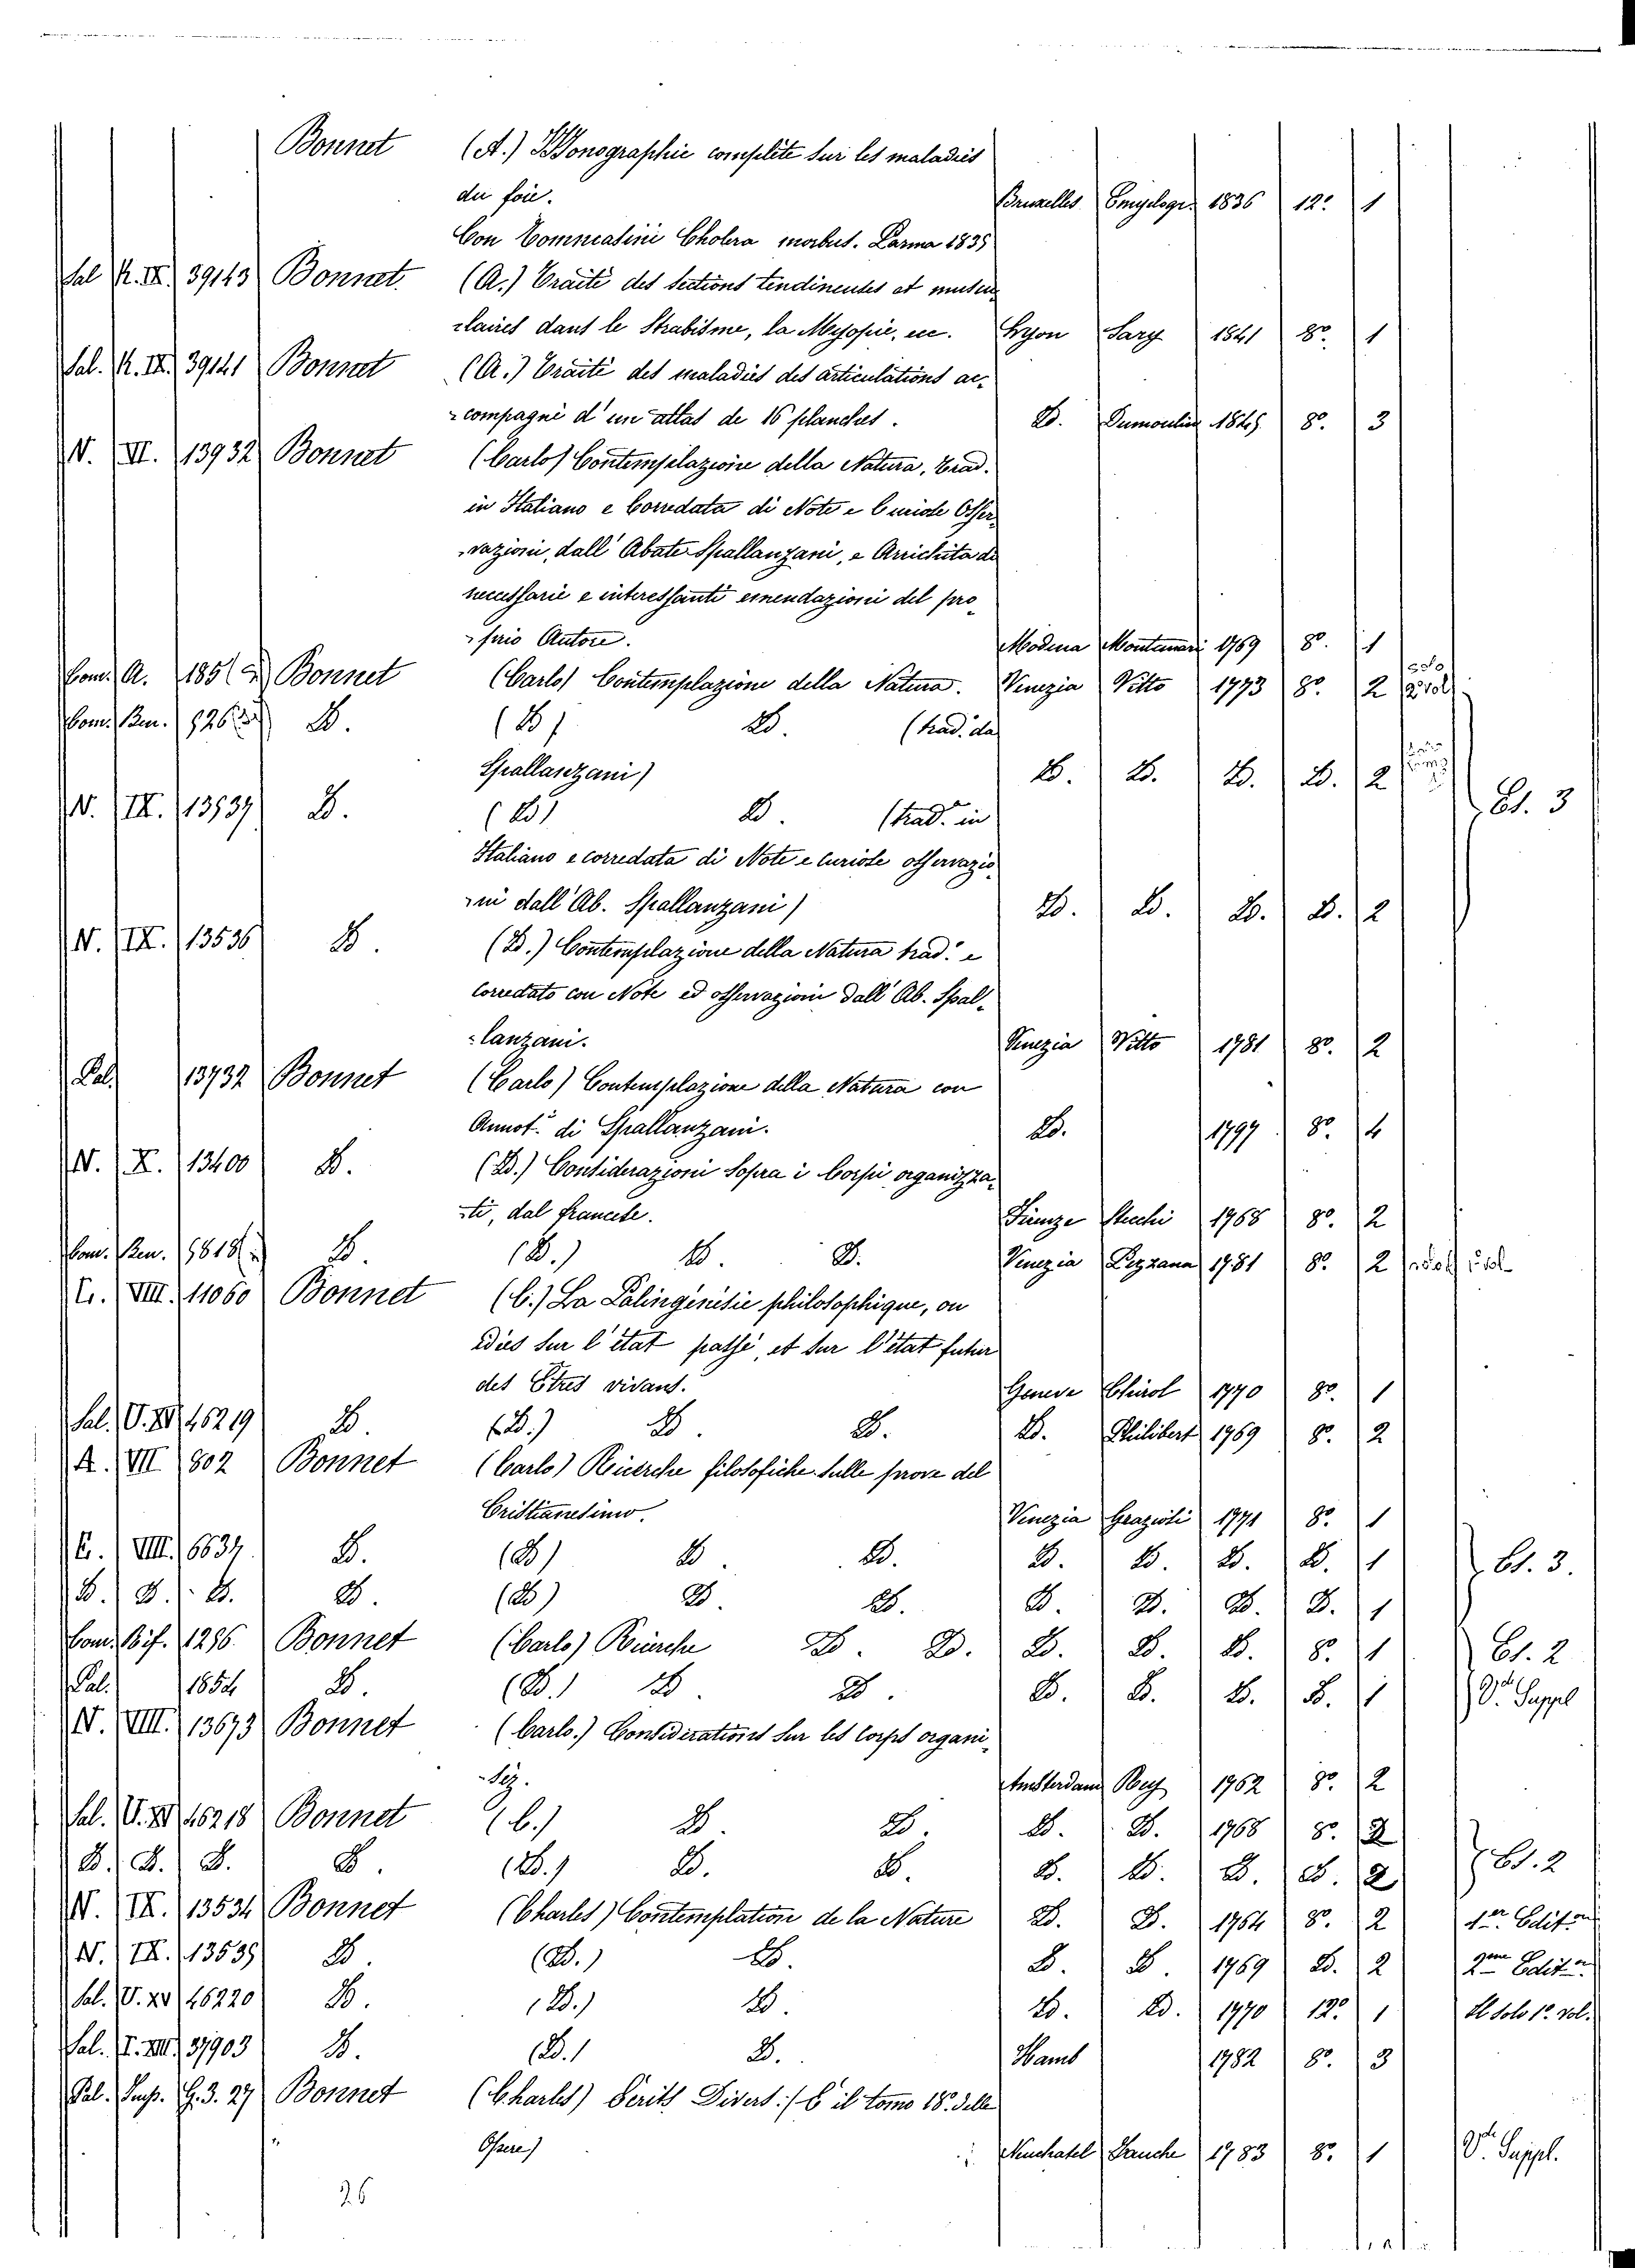 Bonnet (A.) Monographie complète sur les maladies
du foie. Bruxelles 1836 12.° 1
Con Cholera morbus. Parma 1835
Sal R. IX. 39143 Bonnet. (A.) Traité des sections tendineuses et muscu-
-laires dans le Strabisme, la Myopie, ec. Lyon Sary 1841 8.° 1
Sal. R. IX. 39141 Bonnet (A.) Traité des maladies des articulations ac-
-compagné d'un atlas de 16 planches. D. Dumoulin 1845. 8.° 3
N. VII. 13932 Bonnet (Carlo) Contemplazione della Natura, Trad.
in Italiano e Corredata di Note e Curiose Osser-
-vazioni, dall' Abate Spallanzani, e Arrichita di
necessarie e interessanti emendazioni del pro-
-prio Autore. Modena Montanari 1769 8.° 1
Com. A. 185 Bonnet (Carlo) Contemplazione della Natura. Venezia Vitto 1773 8.° 2
Com. Ren. D. (D) D. (trad. da
Spallanzani) D. D. D. D. 2
N. IX. 13537 D. (D) D. (trad. in
Italiano e corredata di Note e curiose osservazio-
-ni dall' Ab. Spallanzani) D. D. D. D. 2
Es. 3
N. IX. 13536 D. (D.) Contemplazione della Natura trad. e
Corredato con Note ed osservazioni dall' Ab. Spal-
-lanzani. Venezia Vitto 1781 8.° 2
Pal. 13732 Bonnet (Carlo) Contemplazione della Natura con
Annot. di Spallanzani. D. 1797 8.° 4
N. X. 13400 D. (D.) Considerazioni Sopra i Corpi organizza-
-ti, dal francese. Firenze Stecchi 1768 8.° 2
Com. Ren. D. (D.) D. D. Venezia Pezzana 1781 8.° 2
G. VIII. 11060 Bonnet (C.) La Palingénésie philosophique, ou
idées sur l'état passé, et sur l'état futur
des Etres vivans. Geneve Chirol 1770 8.° 1
Sal. V. XV. 46219 D. (D.) D. D. D. Philibert 1769 8.° 2
A. VII 802 Bonnet (Carlo) Ricerche filosofiche sulle prove del
Cristianesimo. Venezia Grazioli 1771 8.° 1
C. VIII. 6634 D. (D) D. D. D. D. D. D. 1 Es. 3.
D. D. D. D. (D) D. D. D. D. D. D. 1
Com. Bif. 1296. Bonnet (Carlo) Ricerche D. D. D. D. D. 8. 1 Es. 2
Pal. 1854 D. (D.) D. D. D. D. D. D. 1 Suppl
N. VIII. 13673 Bonnet (Carlo.) Considerations sur les Corps organi-
-séz. Amsterdam Rey 1762 8.° 2
Sal. V. XV 46218 Bonnet (C.) D. D. D. D. 1768 8.° 2
D. D. D. D. (D.) D. D. D. D. D. D. 2 Es. 2
N. IX. 13534 Bonnet (Charles) Contemplation de la Nature D. D. 1764 8.° 2 1.er Edit.on
N. IX. 13535 D. (D.) D. D. D. 1769 D. 2 2.me Edit.on
Sal. V. XV 46220 D. (D.) D. D. D. 1770 12.° 1 Il solo 1.° vol.
Sal. T. XIII. 37903 D. (D.) D. Hamb 1782 8.° 3
Pal. Imp. G. 3. 27 Bonnet (Charles) Ecrits Divers. (È il tomo 18.° delle
Opere) Neuchatel Fauche 1783 8.° 1 Suppl.
26